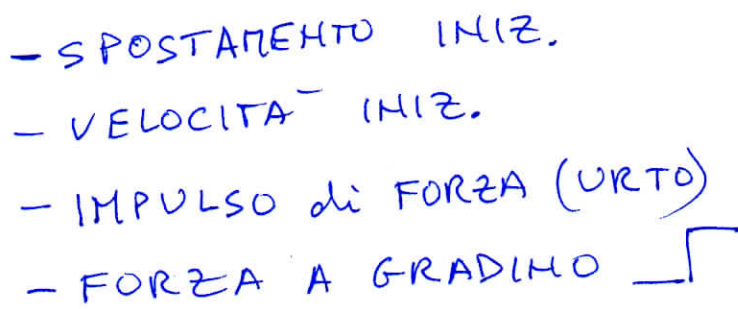 - SPOSTAMENTO INIZ.
- VELOCITA¯ INIZ.
- IMPULSO di FORZA (URTO)
- FORZA A GRADINO